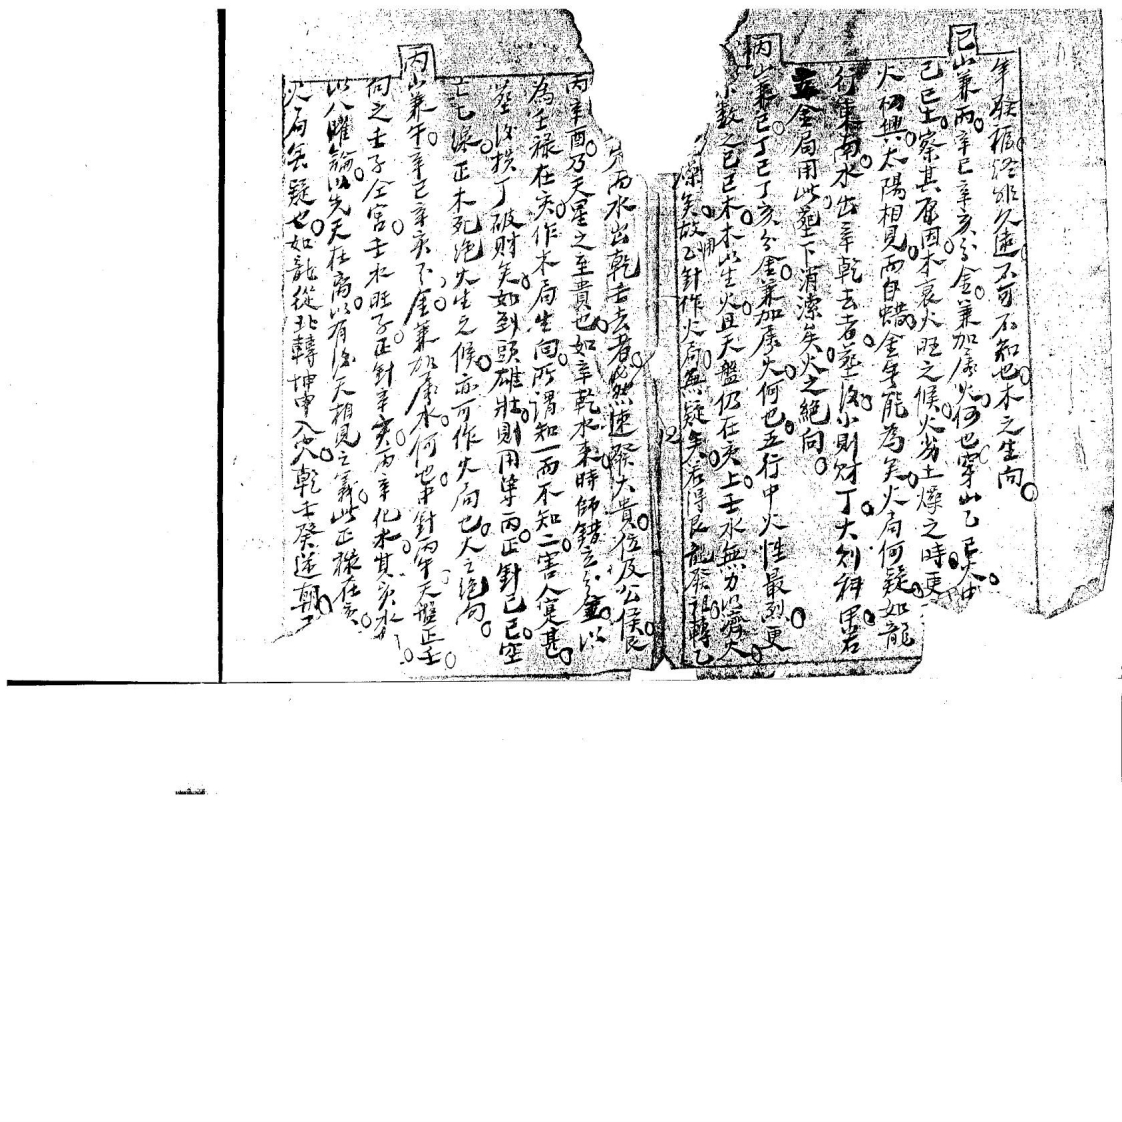 年發福終非久遠不可不知也木之生向
巳山兼丙辛巳辛亥分金兼加房火何也穿山乙巳火中
己巳土察其原因木衰火旺之候火出土燥之時更
火仍興太陽相見而白蠟金無能為矣火局何疑如龍
行東南水出辛乾去者葬後小則財丁大則科甲若
立金局用此葬下消潔矣火之絕向
丙山兼巳丁巳丁亥分金兼加房火何也五行中火性最烈更
數之己巳木木以生火且天盤仍在亥上壬水無力以濟火
燥矣故乙針作火局無疑矣若得艮龍發祖轉乙
丙水出乾去去者必然速發大貴位及公侯艮
丙辛酉乃天星之至貴也如辛乾水來時師錯立分金以
為壬祿在亥作木局生向所謂知一而不知二害人寔甚
葬後損丁破財矣如到頭雄壯則用準丙正針己巳空
亡七線正木死絕火生之候亦可作火局也火之絕向
丙山兼午辛巳辛亥分金兼加房水何也中針丙午天盤正壬
向之壬子仝宮壬水旺子正針辛亥丙辛化水其亥水
以八曜論以先天在离以有後天相見之義此正祿在亥
火局矣疑也如龍從北轉坤申入兌乾壬癸逆朝